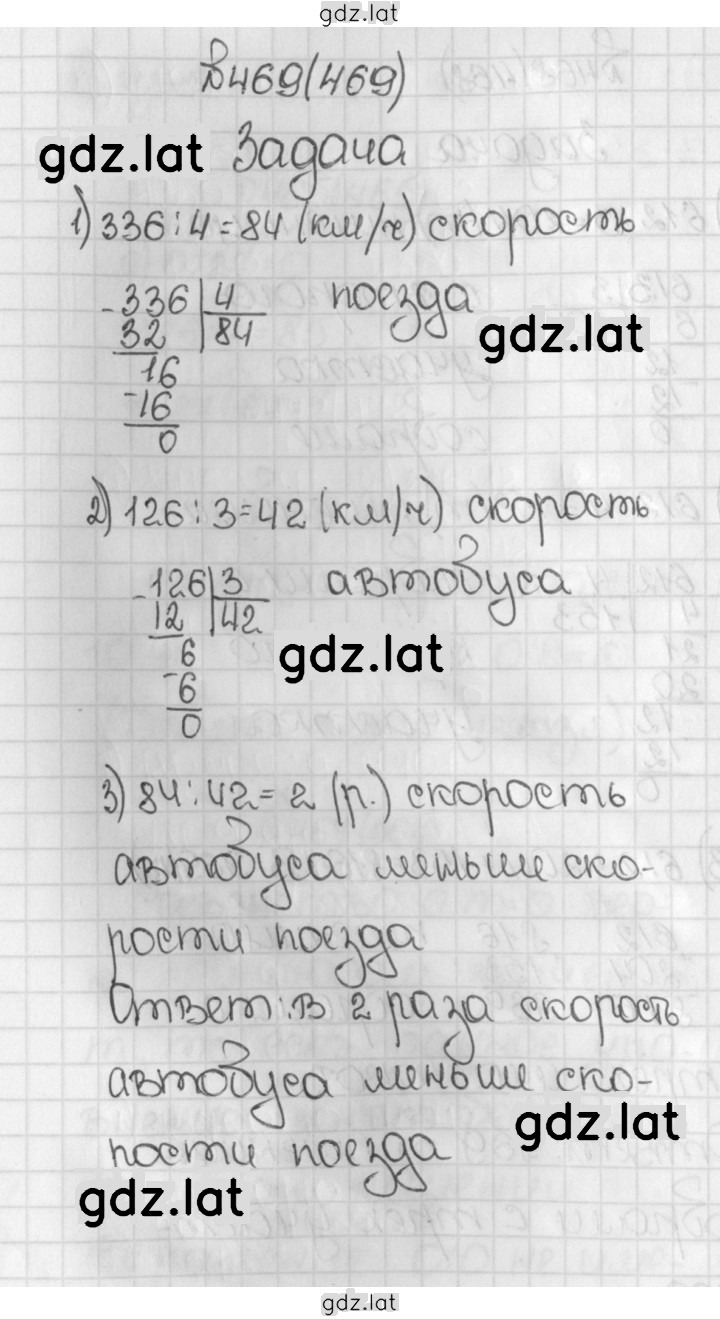 gdz.lat
№469(469)
gdz.lat Задача
1) 336:4=84 (км/ч) скорость
-336|4 поезда
32 |84 gdz.lat
16
-16
0
2) 126:3=42 (км/ч) скорость
-126|3 автобуса
12 |42
6 gdz.lat
-6
0
3) 84:42=2 (р.) скорость
автобуса меньше ско-
рости поезда
Ответ: в 2 раза скорость
автобуса меньше ско-
gdz.lat
пости поезда
gdz.lat
gdz.lat